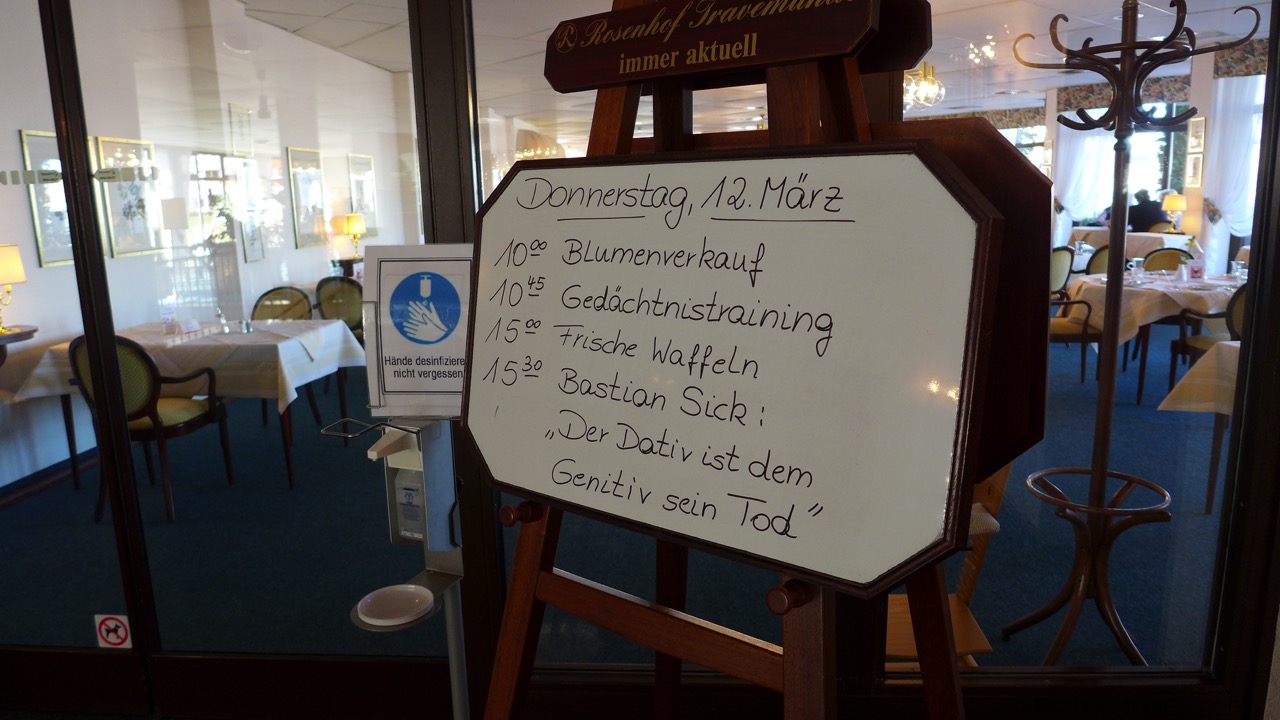 Rosenhof Travemünde
immer aktuell
Donnerstag, 12. März
10⁰⁰ Blumenverkauf
10⁴⁵ Gedächtnistraining
15⁰⁰ Frische Waffeln
15³⁰ Bastian Sick:
„Der Dativ ist dem
Genitiv sein Tod”
Hände desinfiziere
nicht vergessen